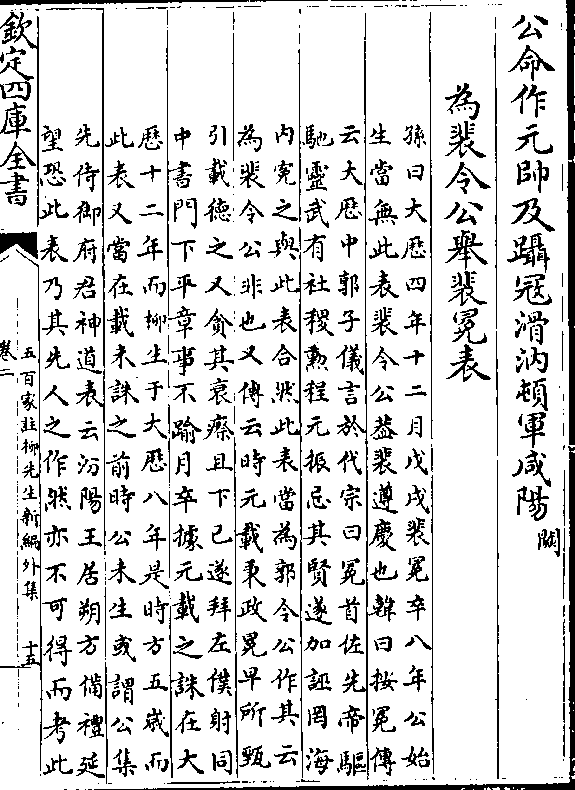 公命作元帥及躡冦滑汭頓軍咸陽闕
為裴令公舉裴冕表
孫曰大厯四年十二月戊戌裴冕卒八年公始
生當無此表裴令公葢裴遵慶也韓曰按冕傳
云大厯中郭子儀言於代宗曰冕首佐先帝驅
馳靈武有社稷勲程元振忌其賢遂加誣罔海
内寃之與此表合然此表當為郭令公作其云
為裴令公非也又傳云時元載秉政冕早所甄
引載德之又貪其衰瘵且下已遂拜左僕射同
中書門下平章事不踰月卒據元載之誅在大
厯十二年而柳生于大厯八年是時方五歲而
此表又當在載未誅之前時公未生或謂公集
先侍御府君神道表云汾陽王居朔方備禮延
望恐此表乃其先人之作然亦不可得而考此
欽定四庫全書
卷二
五百家註柳先生新編外集
十五